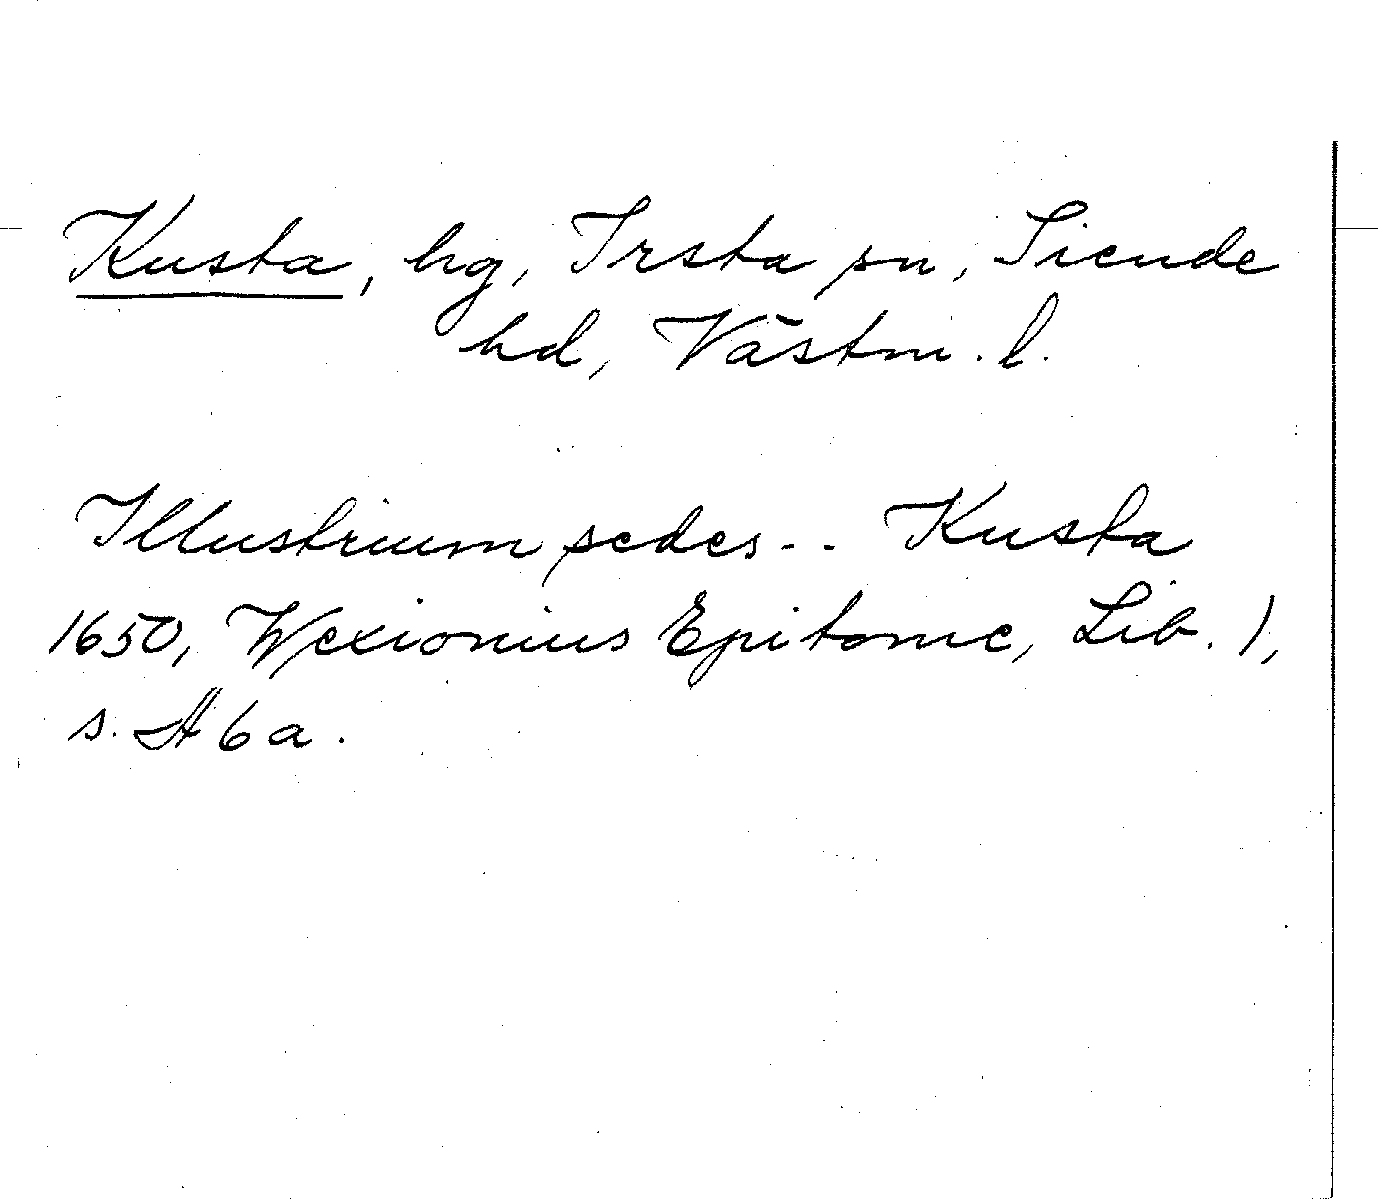 Kusta, hg, Irsta sn, Siende
hd, Västm. l.
Illustrium sedes -- Kusta
1650, Wexionius Epitome, Lib. 1,
s. A 6 a.